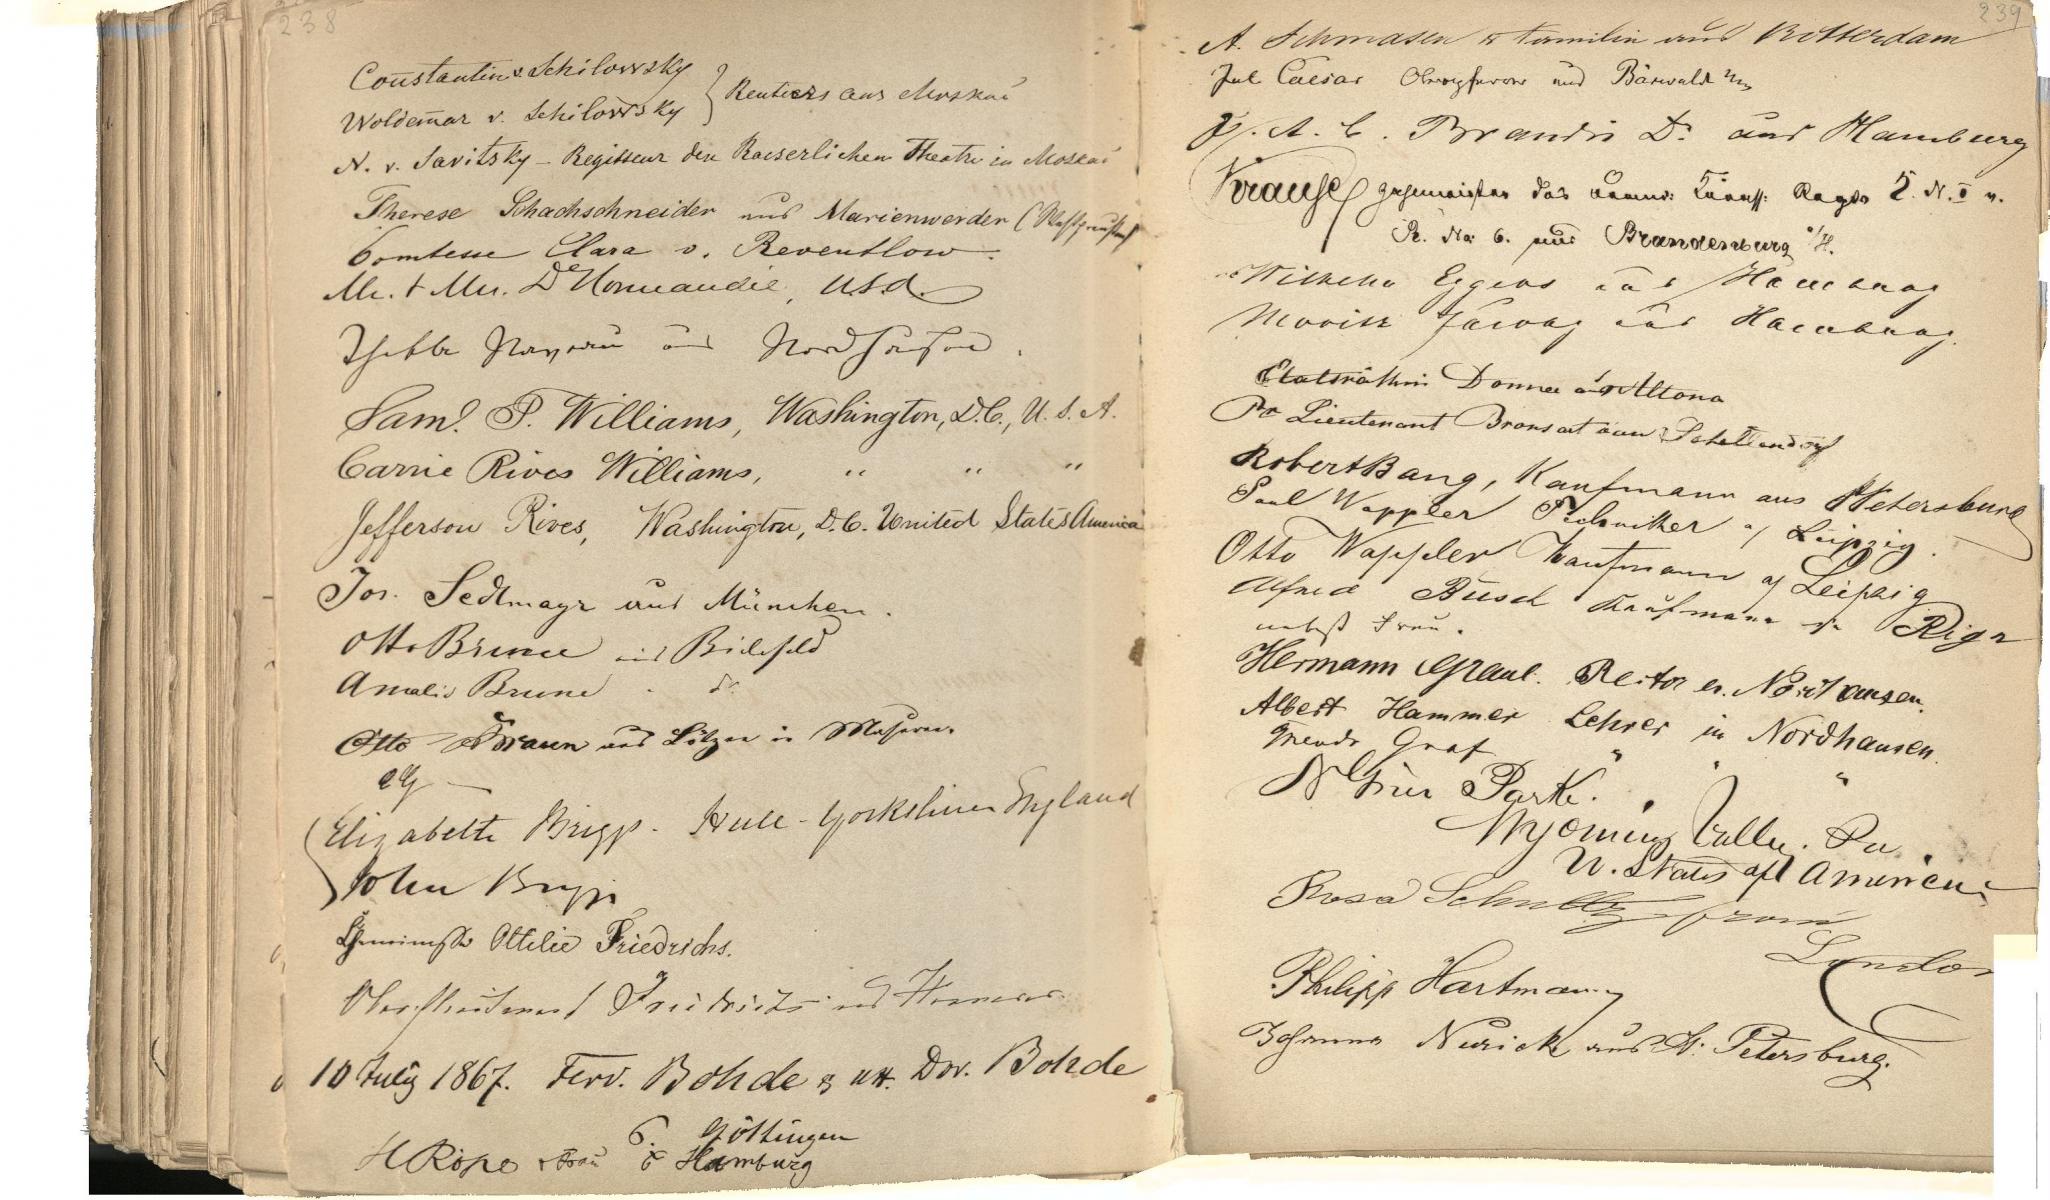 238
Constantin v. Schilowsky
Woldemar v. Schilowsky } Rentiers aus Moskau
N. v. Savitzky - Regisseur der Kaeserlichen Theatre in Moskau
Therese Schachschneider aus Marienwerder (Westpreußen)
Comtesse Clara v. Reventlow.
Mr. & Mrs. De Normandie, U.S.A.
aus Nordhausen.
Saml. P. Williams, Washington, D.C., U.S.A.
Carrie Rives Williams, " " "
Jefferson Rives, Washington, D.C. United States America
Jos. Sedlmayr aus München.
Otto Brune aus Bielefeld
Amalie Brune " do
Otto Braun aus Lötzen in Masuren.
Elizabeth Brigg - Hull - Yorkshire England
John Brigg
Ottilie Friedrichs.
Oberstlieutenant Friedrichs aus
10 July 1867. Ferd. Bohde & Dor. Bohde
Göttingen
H Röpe & Frau Hamburg
239
A. Schmasen & Familie aus Rotterdam
Jul Caesar und Bärwald
J. A. C. Brandis Dr. aus Hamburg
Krause
R. No. 6. aus Brandenburg a/H.
Wilhelm Eggers aus Hamburg
aus Hamburg.
Etatsräthin Donner aus Altona
Pr Lieutenant Bronsart von Schellendorf
Robert Bang, Kaufmann aus St Petersburg
Paul Wappler Techniker a/ Leipzig.
Otto Wappler Kaufmann a/ Leipzig
Alfred Busch Kaufmann Riga
nebst Frau.
Hermann Graul. Rector in Nordhausen.
Albert Hammer Lehrer in Nordhausen.
Graf " " "
Parke.
Wyoming Valley. Pa.
U. States of America
Rosa Schultz from
London
Philipp Hartmann
Johanna Nurick aus St. Petersburg.